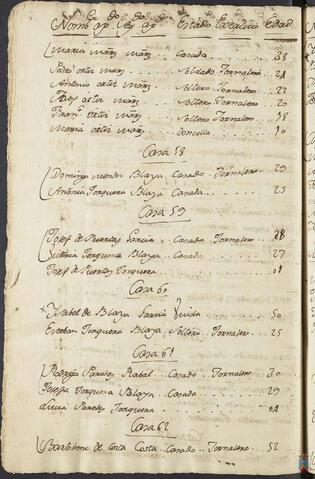 Nomᵉ 1º ap. 2º ap. Estado Exercicio Edad
Maria marz marz Casada 38
Pedro ortiz marz Soltero Jornalero 24
Antonio ortiz marz Soltero Jornalero 22
ortiz marz Soltero Jornalero 20
Franᶜᵒ ortiz marz Soltero Jornalero 18
Maria ortiz marz Doncella 10
Casa 58
Domingo Mendez Blaya Casado Jornalero 29
Antonia Torquera Blaya Casada 25
Casa 59
Josef de Puertas Garcia Casado Jornalero 28
Torquera Blaya Casada 27
Josef de Puertas Torquera 01
Casa 60
Ysabel de Blaya Garcia Viuda 50
Esteban Torquera Blaya Soltero Jornalero 25
Casa 61
Rodrigo Paredes Rabal Casado Jornalero 30
Josefa Torquera Blaya Casada 29
Lucia Paredes Torquera 04
Casa 62
Bartolome de Costa Costa Casado Jornalero 52